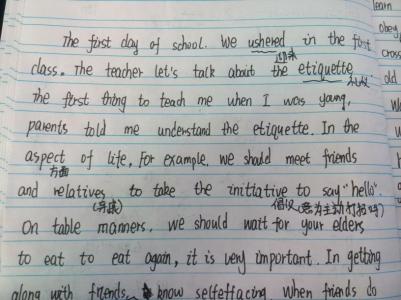 The first day of school. We ushered in the first
迎来
class. The teacher let's talk about the etiquette
礼仪
The first thing to teach me when I was young,
parents told me understand the etiquette. In the
aspect of life, For example, we should meet friends
方面
and relatives to take the initiative to say "hello".
(亲戚) 倡议(意为主动打招呼)
On table manners, we should wait for your elders
to eat to eat again, it is very important. In getting
along with friends, know selfeffacing, when friends do
learn
obey
cross
old